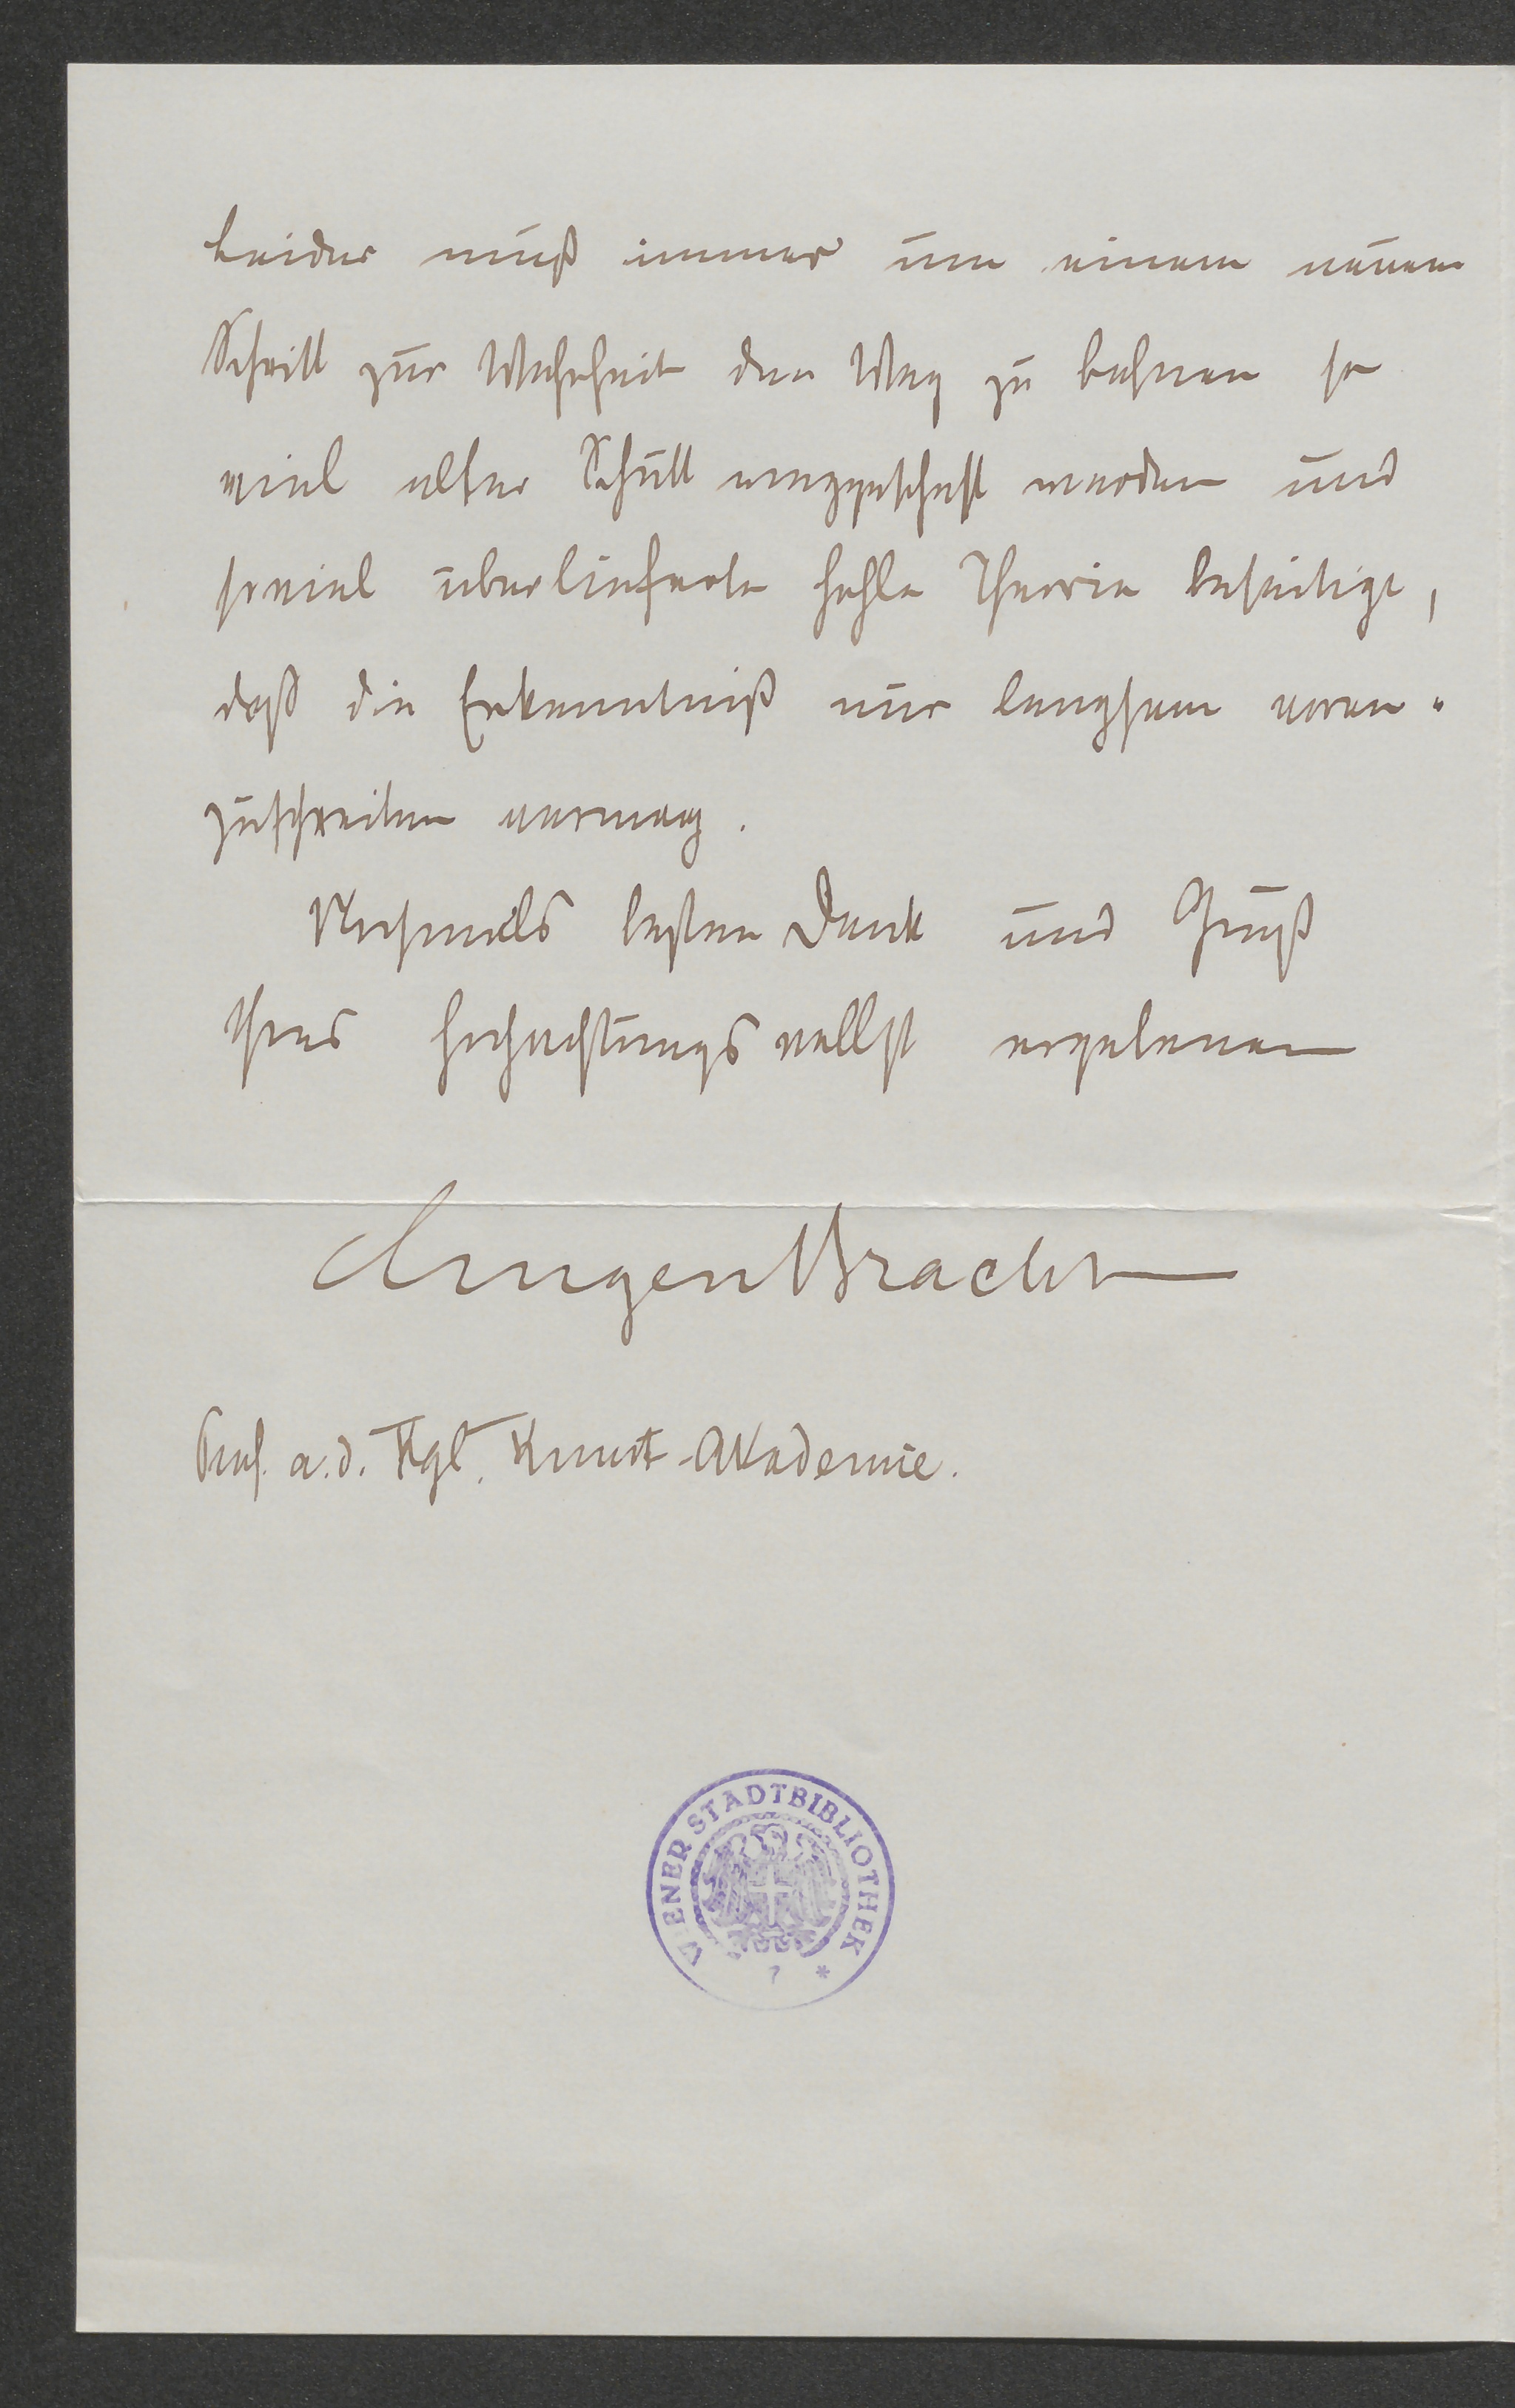 Leider muß immer um einem neuen
Schritt zur Wahrheit den Weg zu bahnen so
viel alter Schutt weggeschafft werden und
soviel überlieferte hohle Theorie beseitigt,
daß die Erkenntniß nur langsam voran-
zuschreiten vermag.
Nochmals besten Dank und Gruß
Ihres hochachtungsvollst ergebenen
Eugen Bracht
Prof. a. d. Kgl. Kunst-Akademie.
WIENER STADTBIBLIOTHEK
7 *